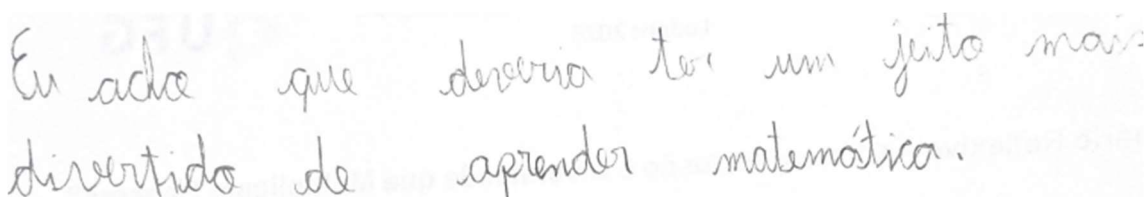 Eu acho que deveria ter um jeito mais
divertido de aprender matemática.